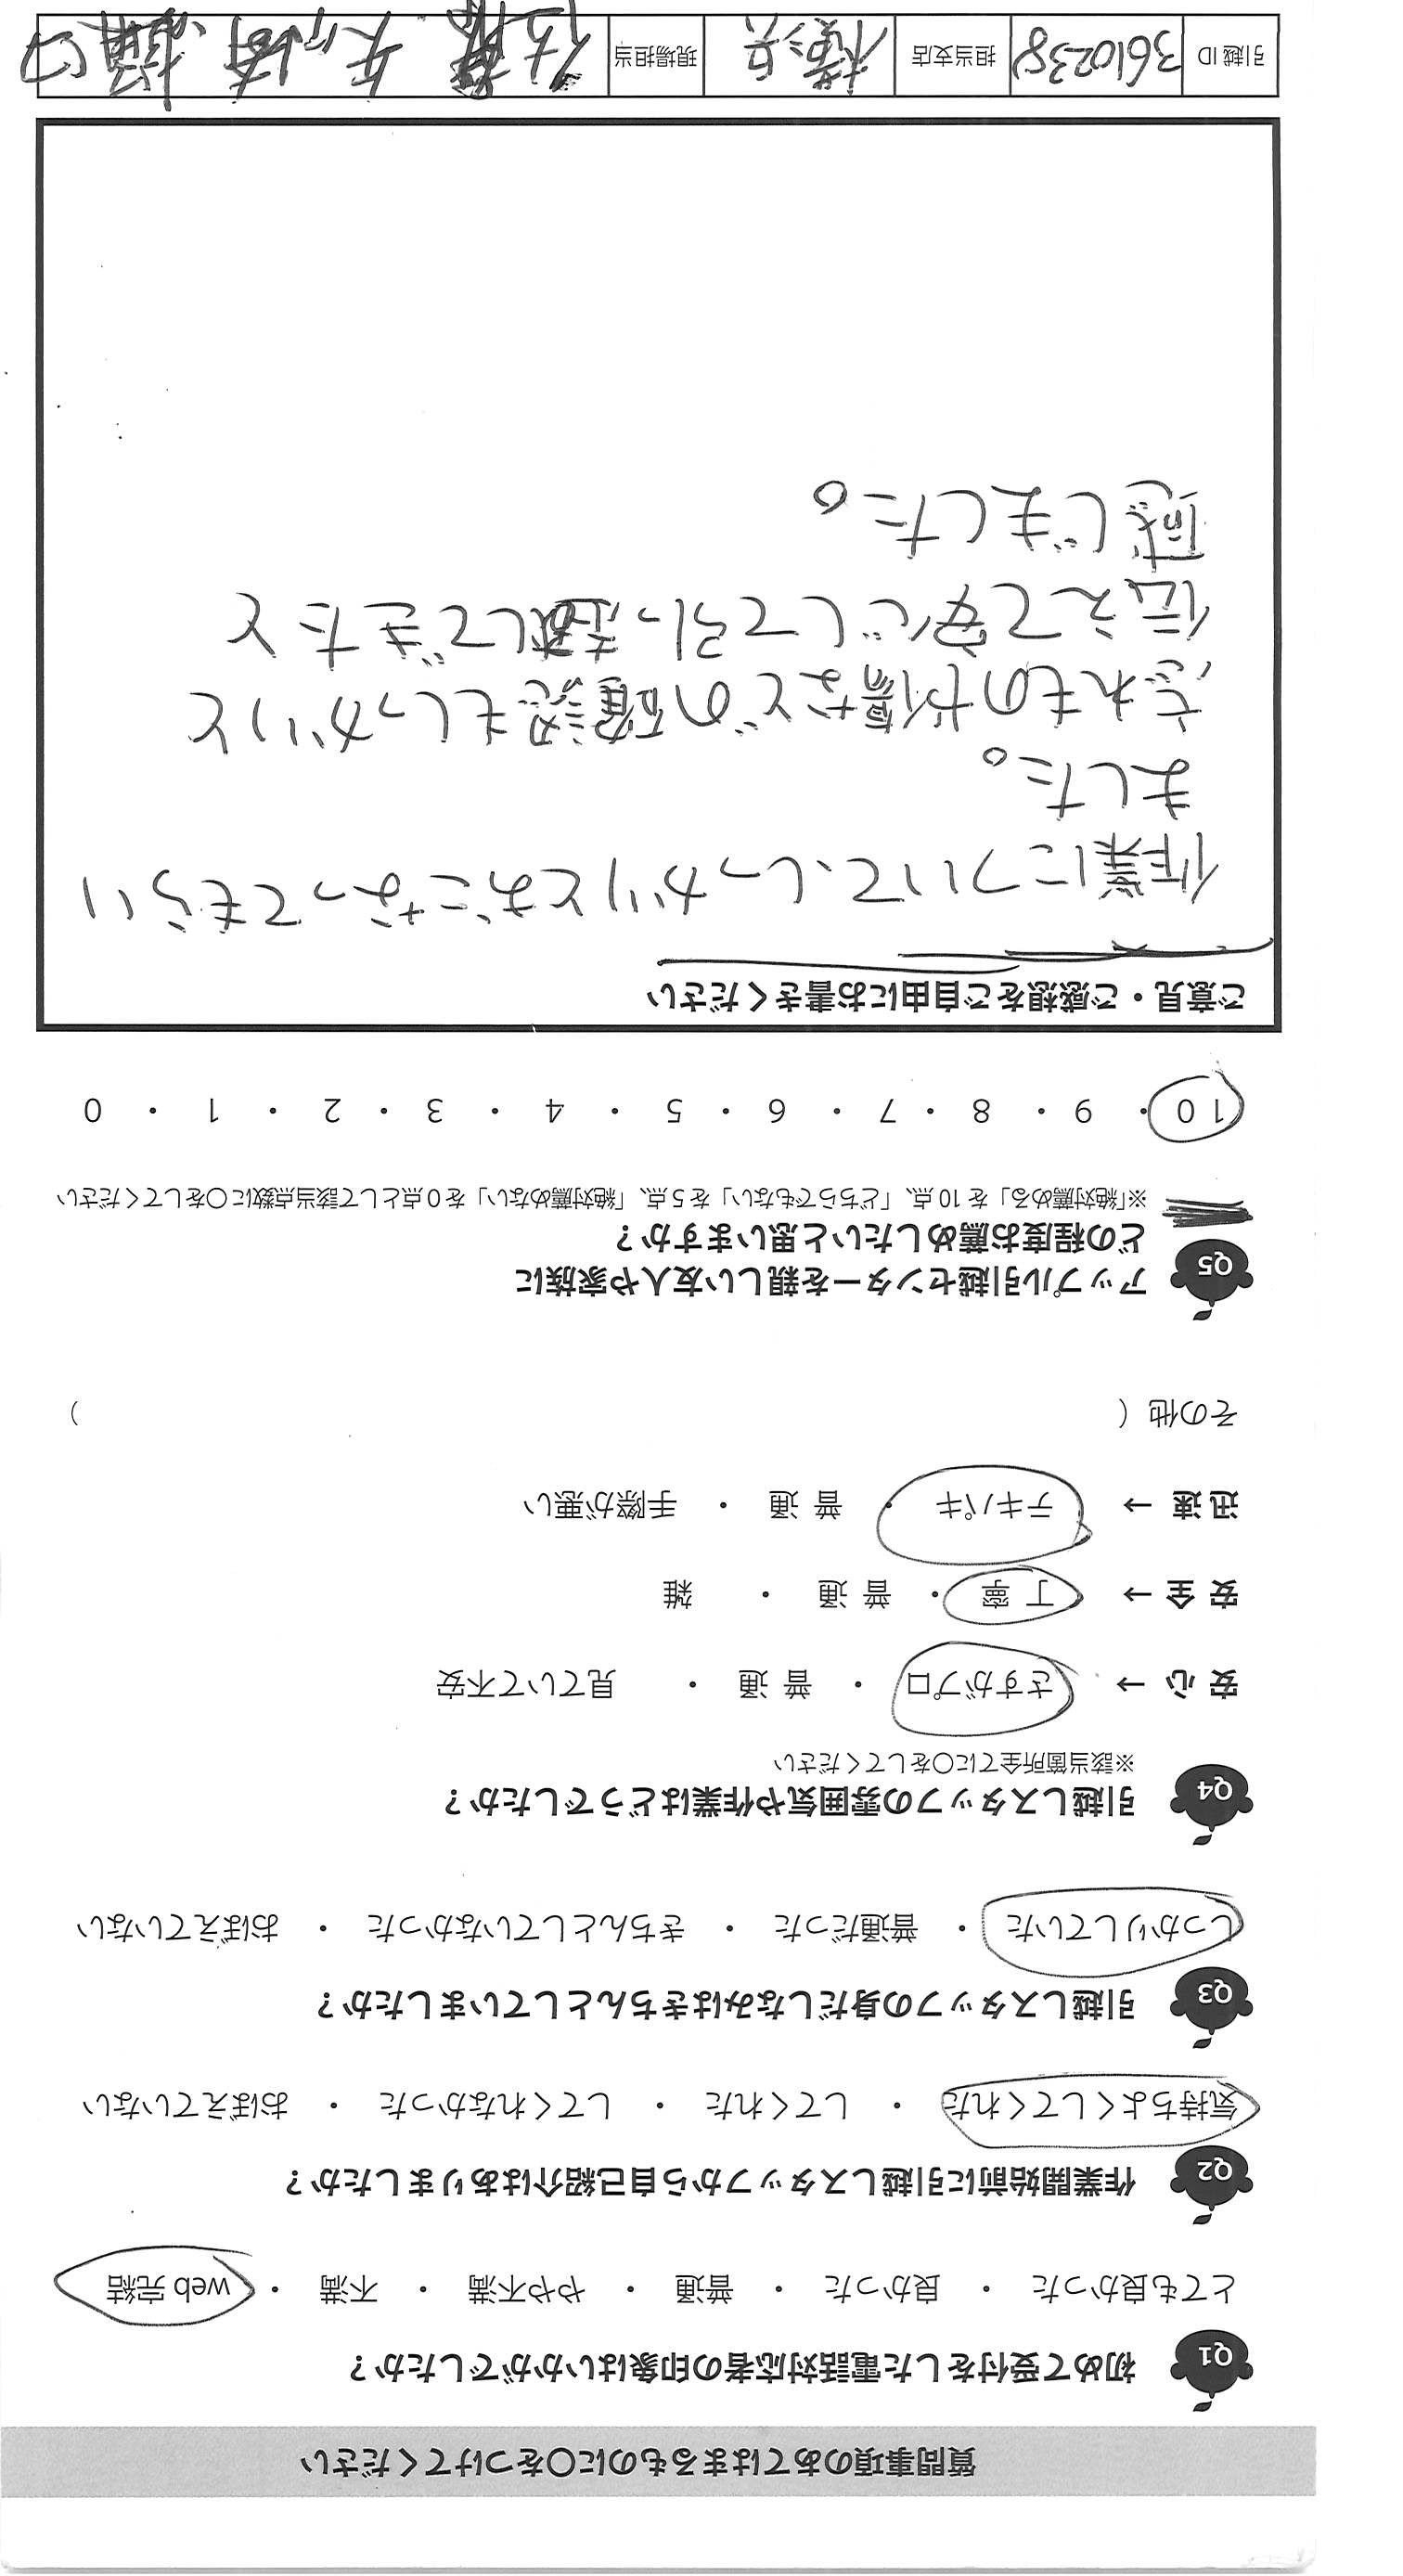 質問事項のあてはまるものに○をつけてください
Q1 初めて受付をした電話対応者の印象はいかがでしたか？
とても良かった ・ 良かった ・ 普通 ・ やや不満 ・ 不満 ・ web 完結
Q2 作業開始前に引越しスタッフから自己紹介はありましたか？
気持ちよくしてくれた ・ してくれた ・ してくれなかった ・ おぼえていない
Q3 引越しスタッフの身だしなみはきちんとしていましたか？
しっかりしていた ・ 普通だった ・ きちんとしていなかった ・ おぼえていない
Q4 引越しスタッフの雰囲気や作業はどうでしたか？
※該当箇所全てに○をしてください
安 心 → さすがプロ ・ 普 通 ・ 見ていて不安
安 全 → 丁 寧 ・ 普 通 ・ 雑
迅 速 → テキパキ ・ 普 通 ・ 手際が悪い
その他（ ）
Q5 アップル引越センターを親しい友人や家族に
どの程度お薦めしたいと思いますか？
※「絶対薦める」を 10 点、「どちらでもない」を 5 点、「絶対薦めない」を 0 点として該当点数に○をしてください
10 ・ 9 ・ 8 ・ 7 ・ 6 ・ 5 ・ 4 ・ 3 ・ 2 ・ 1 ・ 0
ご意見・ご感想をご自由にお書きください
作業について、しっかりとおこなってもらい
ました。
忘れもの破損などの確認もしっかりと
伝えて安心して引っ越してできたと
感じました。
引越 ID 3610238 担当支店 横浜 現場担当 佐藤